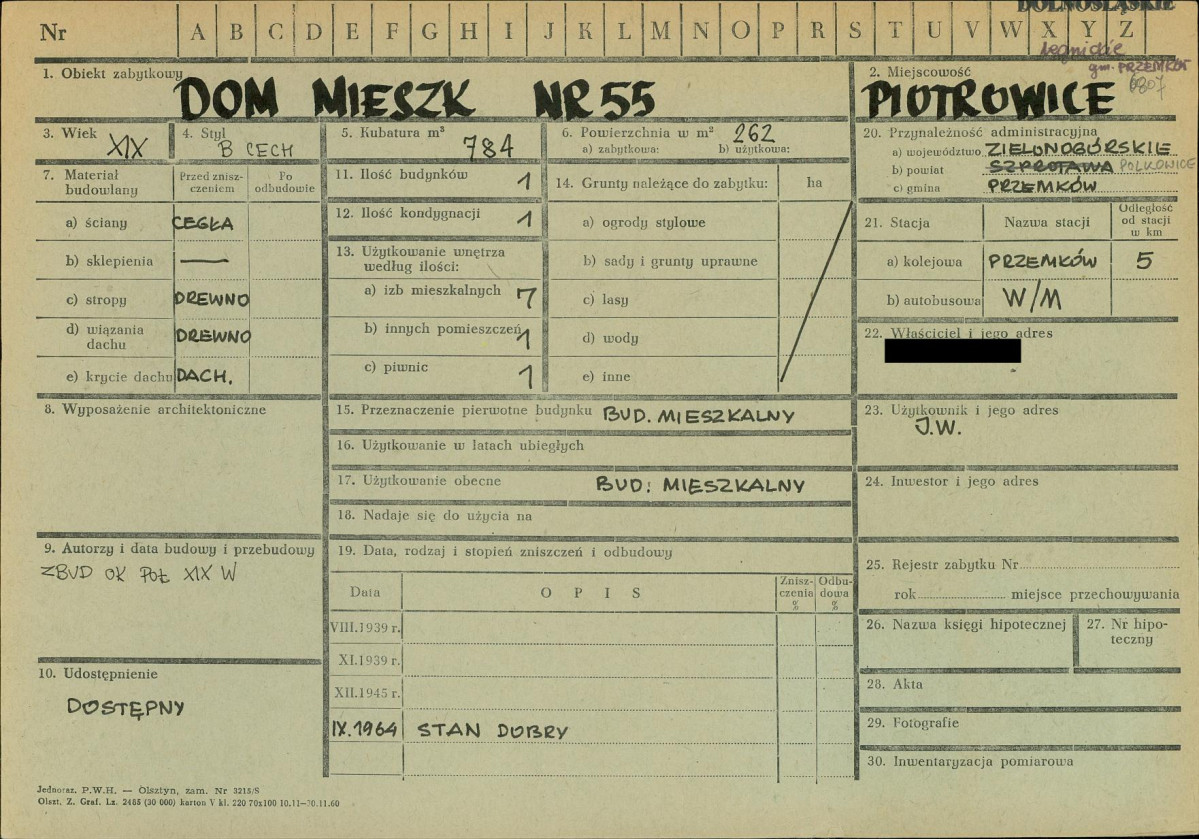 DOLNOŚLĄSKIE
Nr A B C D E F G H I J K L M N O P R S T U V W X Y Z
legnickie
gm. PRZEMKÓW
0807
1. Obiekt zabytkowy DOM MIESZK NR 55
2. Miejscowość PIOTROWICE
3. Wiek XIX
4. Styl B CECH
5. Kubatura m³ 784
6. Powierzchnia w m² 262
a) zabytkowa: b) użytkowa:
7. Materiał budowlany
Przed zniszczeniem
Po odbudowie
a) ściany CEGŁA
b) sklepienia —
c) stropy DREWNO
d) wiązania dachu DREWNO
e) krycie dachu DACH.
8. Wyposażenie architektoniczne
9. Autorzy i data budowy i przebudowy
ZBUD OK POŁ XIX W
10. Udostępnienie
DOSTĘPNY
11. Ilość budynków 1
12. Ilość kondygnacji 1
13. Użytkowanie wnętrza
według ilości:
a) izb mieszkalnych 7
b) innych pomieszczeń 1
c) piwnic 1
14. Grunty należące do zabytku: ha
a) ogrody stylowe
b) sady i grunty uprawne
c) lasy
d) wody
e) inne
15. Przeznaczenie pierwotne budynku BUD. MIESZKALNY
16. Użytkowanie w latach ubiegłych
17. Użytkowanie obecne BUD: MIESZKALNY
18. Nadaje się do użycia na
19. Data, rodzaj i stopień zniszczeń i odbudowy
Data OPIS Zniszczenia % Odbudowa %
VIII.1939 r.
XI.1939 r.
XII.1945 r.
IX.1964 STAN DOBRY
20. Przynależność administracyjna
a) województwo ZIELONOGÓRSKIE
b) powiat SZPROTAWA POLKOWICE
c) gmina PRZEMKÓW
21. Stacja Nazwa stacji Odległość od stacji w km
a) kolejowa PRZEMKÓW 5
b) autobusowa W/M
22. Właściciel i jego adres
23. Użytkownik i jego adres
J.W.
24. Inwestor i jego adres
25. Rejestr zabytku Nr
rok miejsce przechowywania
26. Nazwa księgi hipotecznej
27. Nr hipoteczny
28. Akta
29. Fotografie
30. Inwentaryzacja pomiarowa
Jednoraz. P.W.H. — Olsztyn, zam. Nr 3215/S
Olszt. Z. Graf. Lz. 2485 (30 000) karton V kl. 220 70x100 10.11—30.11.60